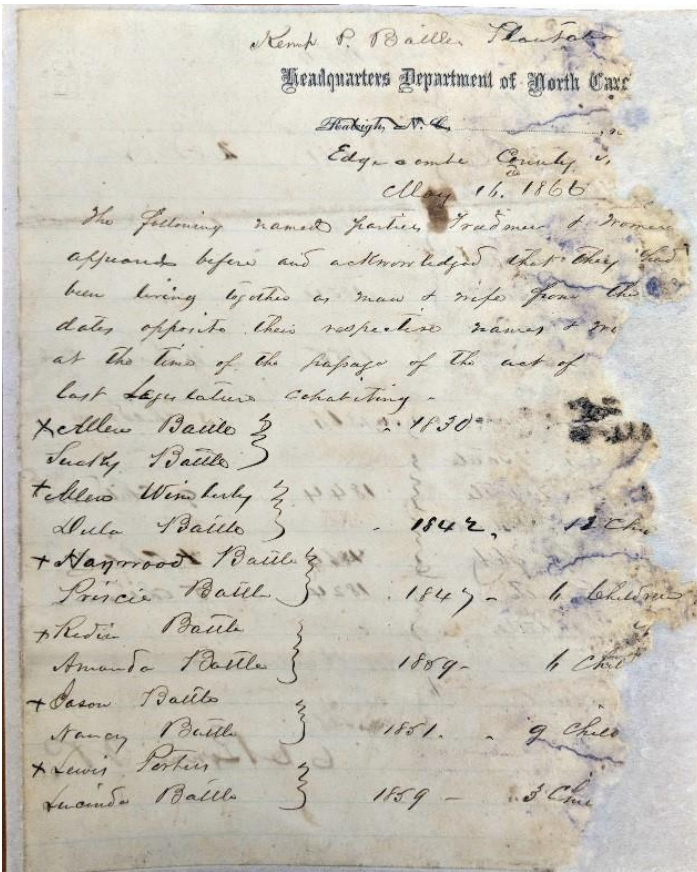 Kemp P. Battle Plantatio
Headquarters Department of North Car
Raleigh, N. C.,
Edgecombe County
May 16. 1866
The following named parties Freedmen & Women
appeared before and acknowledged that they had
been living together as man & wife from the
dates opposite their respective names & we
at the time of the passage of the act of
last Legislature cohabiting -
x Allen Battle } - 1830 -
Sucky Battle
+ Allen Wimberly
Della Battle } - 1842, 12 Chi
+ Haywood Battle
Priscie Battle } - 1847 - 6 Children
+ Redin Battle
Amanda Battle } 1859 - 6 Chil
+ Jason Battle
Nancy Battle } 1851. - 9 Chil
x Lewis
Lucinda Battle } 1859 - 3 Chi